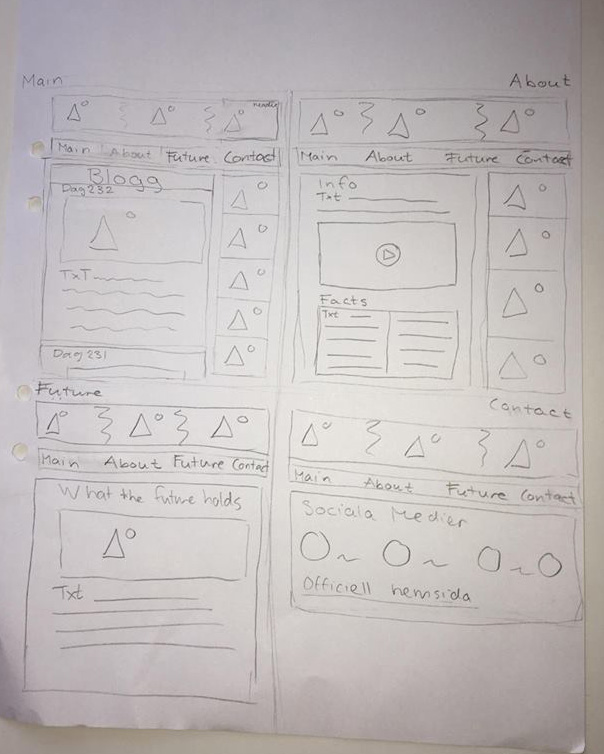 Main
header
Main About Future Contact
Blogg
Dag 232
TxT
Dag 231
About
Main About Future Contact
Info
Txt
Facts
Txt
Future
Main About Future Contact
What the future holds
Txt
Contact
Main About Future Contact
Sociala Medier
Officiell hemsida